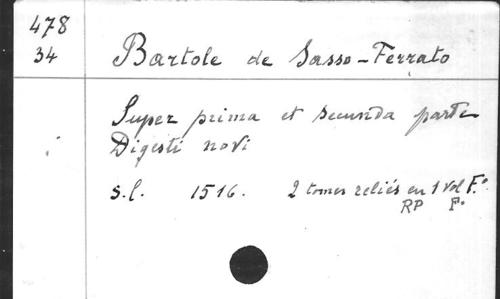 478
34
Bartole de Sasso-Ferrato
Super prima et secunda parte
Digesti novi
s.l. 1516. 2 tomes reliés en 1 vol F.°
RP F°